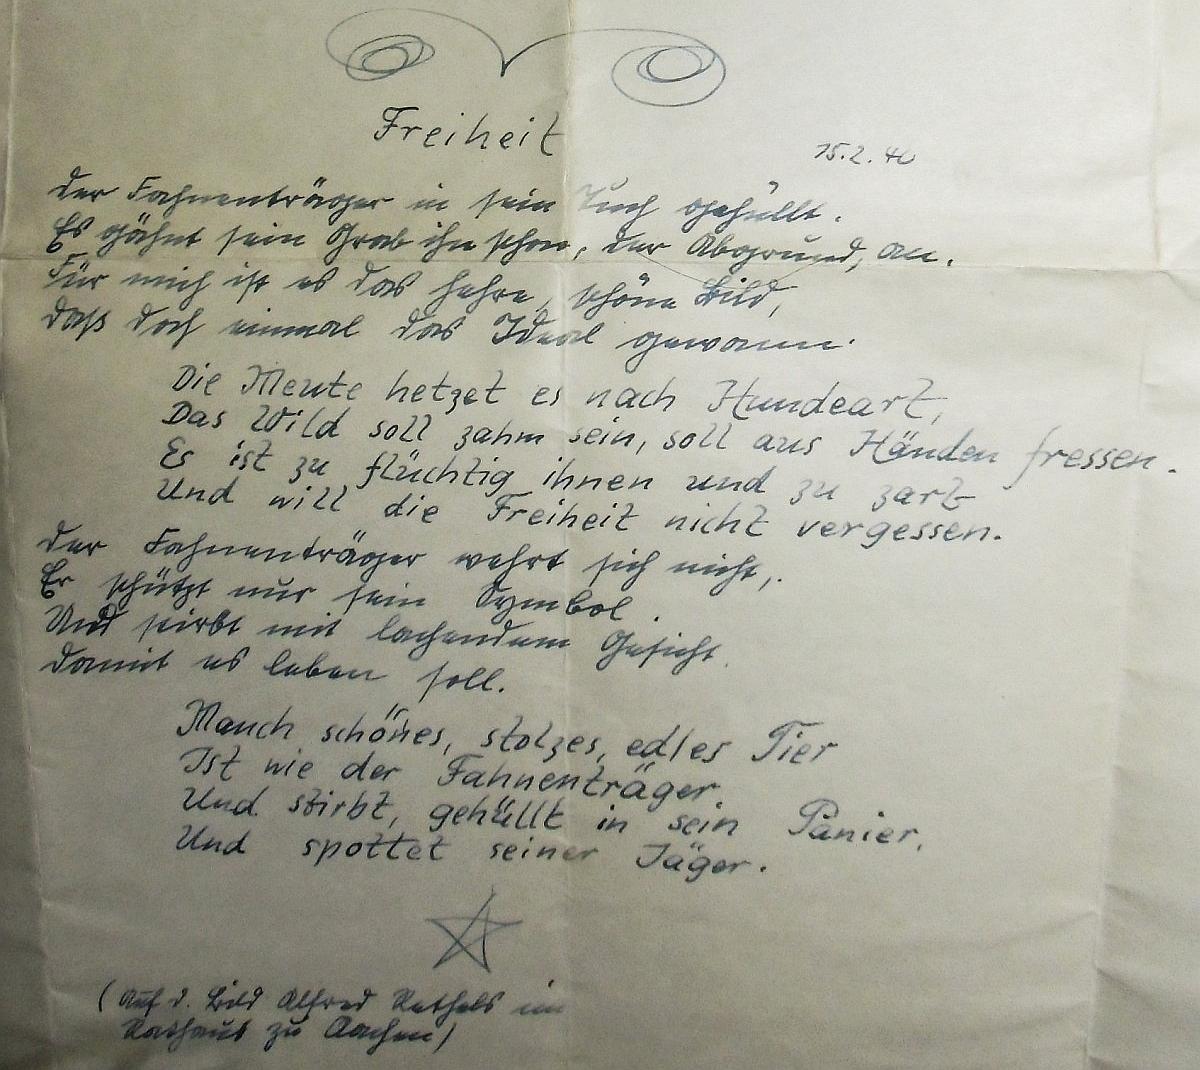 Freiheit
15.2.40
Der Fahnenträger in sein Tuch gehüllt.
Es gähnt sein Grab ihn schon, der Abgrund, an.
Für mich ist es das hehre, schöne Bild,
daß doch einmal das Ideal gewann.
Die Meute hetzet es nach Hundeart,
Das Wild soll zahm sein, soll aus Händen fressen.
Es ist zu flüchtig ihnen und zu zart
Und will die Freiheit nicht vergessen.
Der Fahnenträger wehrt sich nicht,
Er schützt nur sein Symbol
Und stirbt mit lachendem Gesicht
damit es leben soll.
Manch schönes, stolzes, edles Tier
Ist wie der Fahnenträger
Und stirbt, gehüllt in sein Panier,
Und spottet seiner Jäger.
(Auf d. Bild Alfred Rethels im
Rathaus zu Aachen)